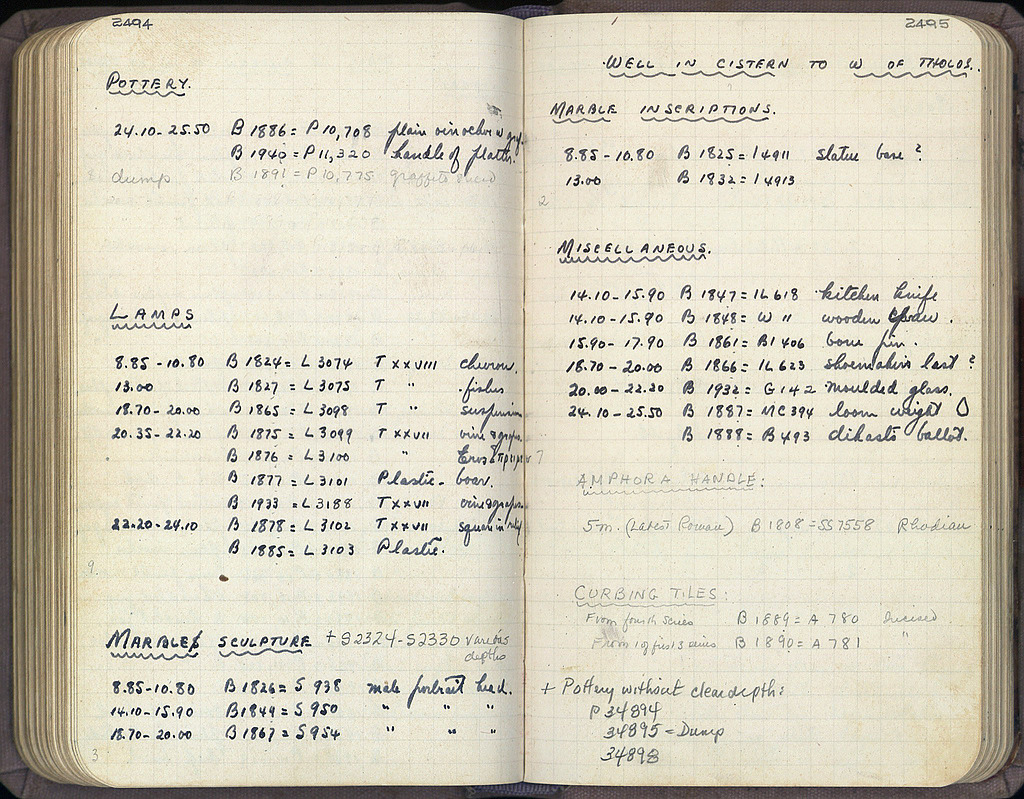 2494
POTTERY.
24.10-25.50 B 1886 = P 10,708 plain oinochoe w graf.
B 1940 = P 11,320 handle of platter.
dump B 1891 = P 10,775 graffito sherd
LAMPS
8.85-10.80 B 1824 = L 3074 T XXVIII chevron.
13.00 B 1827 = L 3075 T " fishes
18.70-20.00 B 1865 = L 3098 T "
20.35-22.20 B 1875 = L 3099 T XXVII vine & grapes
B 1876 = L 3100 " Eros
B 1877 = L 3101 Plastic - boar.
B 1933 = L 3188 T XXVII vine & grapes
22.20-24.10 B 1878 = L 3102 T XXVII square in relief
B 1885 = L 3103 Plastic.
9.
MARBLE SCULPTURE + S2324-S2330 various
depths
8.85-10.80 B 1826 = S 938 male portrait head.
14.10-15.90 B 1849 = S 950 " " "
18.70-20.00 B 1867 = S 954 " " "
3
2495
WELL IN CISTERN TO W OF THOLOS.
MARBLE INSCRIPTIONS.
8.85-10.80 B 1825 = I 4911 statue base?
13.00 B 1832 = I 4913
2
MISCELLANEOUS.
14.10-15.90 B 1847 = IL 618 kitchen knife
14.10-15.90 B 1848 = W 11 wooden
15.90-17.90 B 1861 = BI 406 bone pin.
18.70-20.00 B 1866 = IL 623 shoemakers last?
20.00-22.20 B 1932 = G 142 moulded glass.
24.10-25.50 B 1887 = MC 394 loom weight
B 1888 = B 493 dikasts ballot.
AMPHORA HANDLE:
5 m. (Latest Roman) B 1808 = SS 7558 Rhodian
CURBING TILES:
From fourth series B 1889 = A 780 Incised
From 1 of first 3 series B 1890 = A 781 "
+ Pottery without clear depth:
P 34894
34895 = Dump
34898